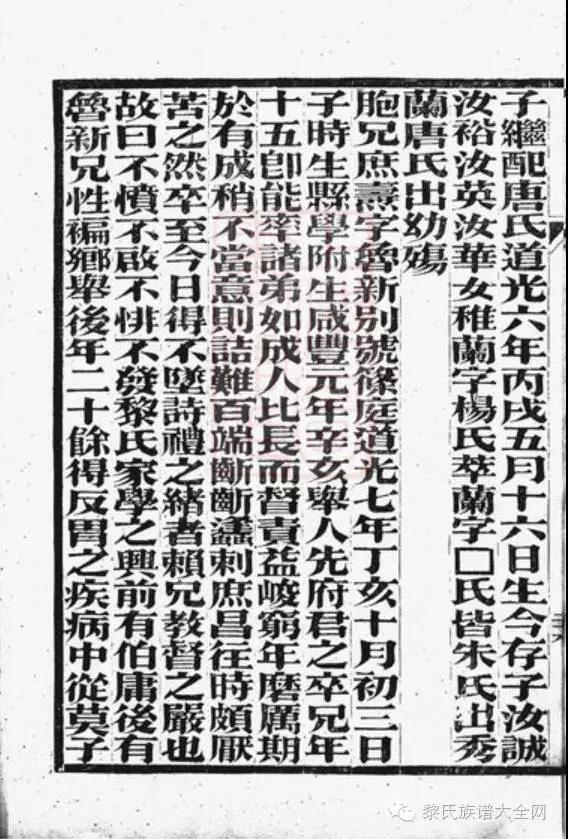 子繼配唐氏道光六年丙戌五月十六日生今存子汝誠
汝裕汝英汝華女稚蘭字楊氏萃蘭字□氏皆朱氏出秀
蘭唐氏出幼殤
胞兄庶燾字魯新別號篠庭道光七年丁亥十月初三日
子時生縣學附生咸豐元年辛亥舉人先府君之卒兄年
十五卽能率諸弟如成人比長而督責益峻窮年磨厲期
於有成稍不當意則詰難百端齗齗盡刺庶昌往時頗厭
苦之然卒至今日得不墜詩禮之緒者賴兄教督之嚴也
故曰不憤不啟不悱不發黎氏家學之興前有伯庸後有
魯新兄性褊鄉舉後年二十餘得反胃之疾病中從莫子
黎氏族谱大全网